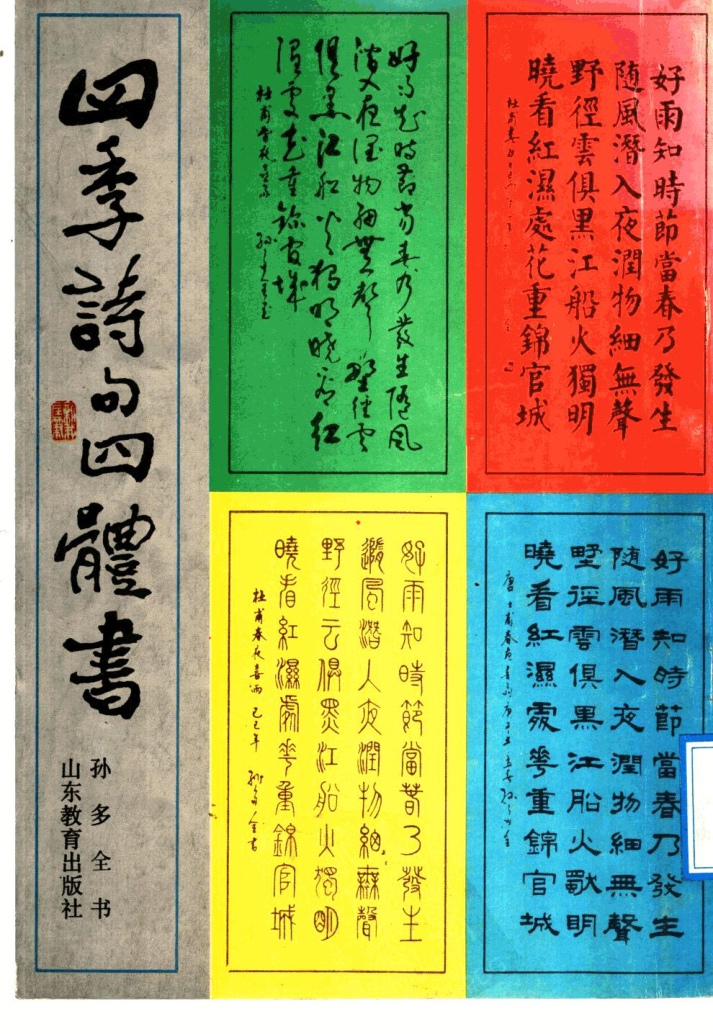 四季詩句四體書
孙多全书
山东教育出版社
好雨知時節當春乃發生
随風潛入夜潤物細無聲
野徑雲俱黑江船火獨明
曉看紅濕處花重錦官城
好雨知時節當春乃發生隨風
潛入夜潤物細無聲野徑雲
俱黑江船火獨明曉看紅
濕處花重錦官城
杜甫春夜喜雨
好雨知時節當春乃發生
随風潛入夜潤物細無聲
野徑雲俱黑江船火獨明
曉看紅濕處華重錦官城
好雨知時節當春乃發生
隨風潛入夜潤物細無聲
野徑云俱黑江船火獨明
曉看紅濕處華重錦官城
杜甫春夜喜雨 己巳年